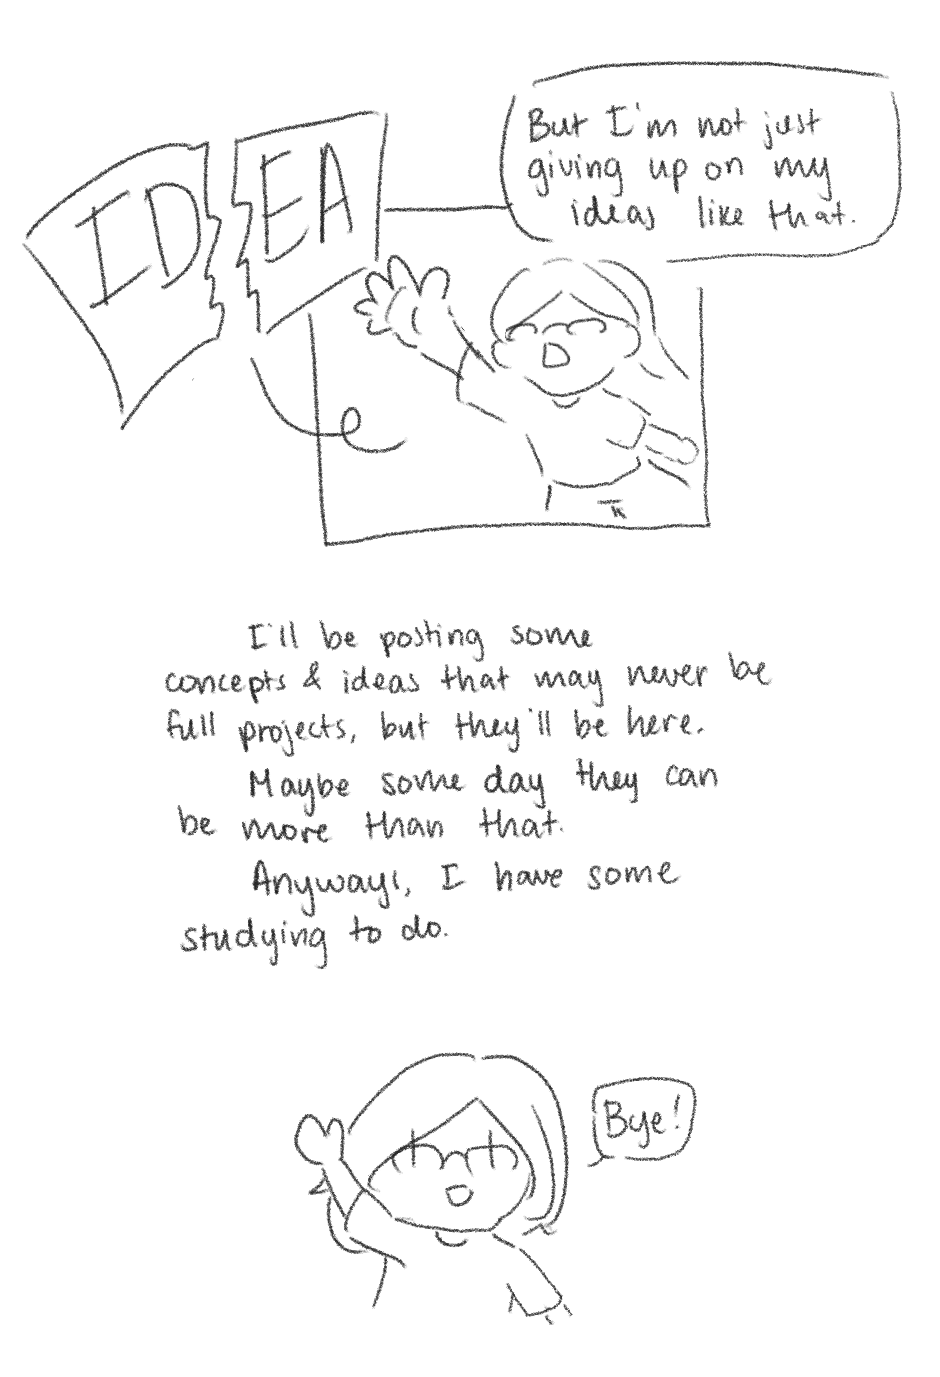 IDEA
But I'm not just
giving up on my
ideas like that.
I'll be posting some
concepts & ideas that may never be
full projects, but they'll be here.
Maybe some day they can
be more than that.
Anyways, I have some
studying to do.
Bye!